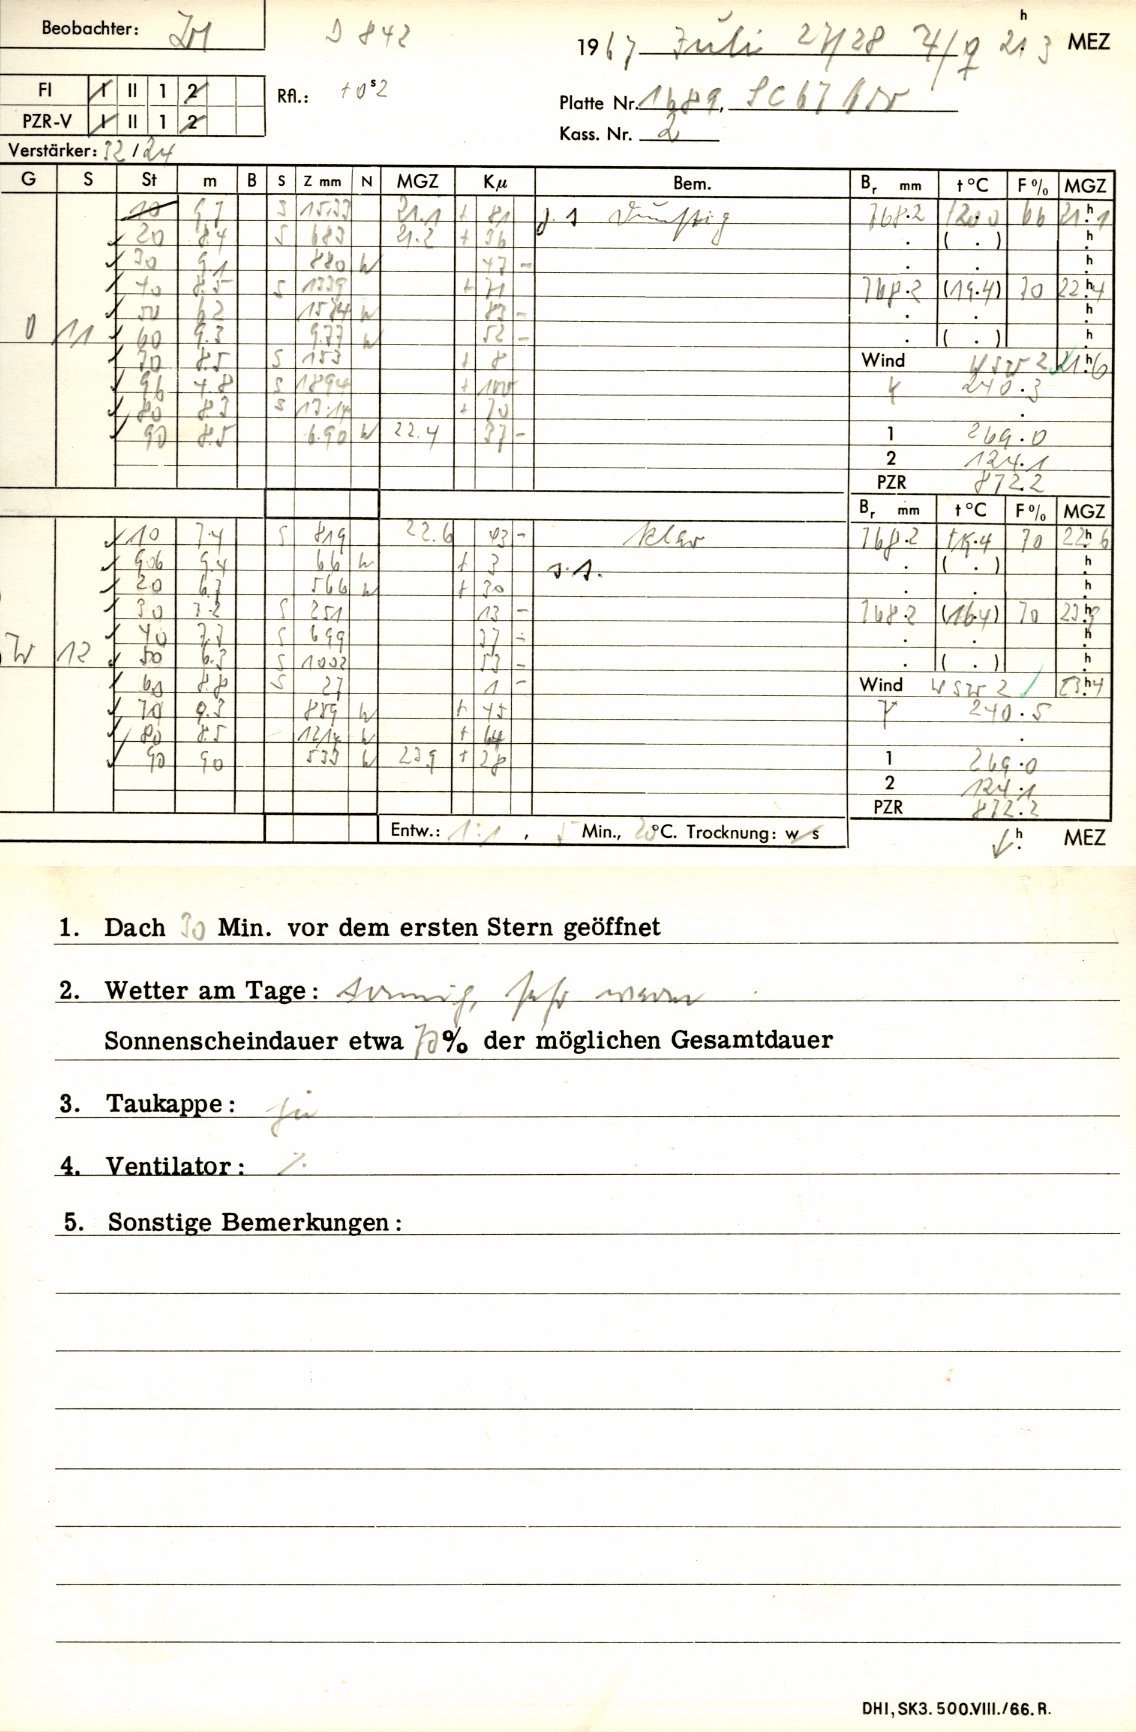 Beobachter:
D 842
1967 Juli 27/28 21h3 MEZ
FI I II 1 2
Rfl.: +0s2
PZR-V I II 1 2
Platte Nr. 1689,
Kass. Nr. 2
Verstärker: 32/24
G S St m B S Z mm N MGZ Kμ Bem. Br mm t °C F % MGZ
10 9.7 S 1533 21.1 + 81 s. 1 dunstig 768.2 66 21h1
20 8.4 S 683 21.2 + 36 ( . ) h
30 9.1 880 W 47 – h
40 8.5 S 1339 + 71 768.2 (19.4) 70 22h4
50 6.2 W – h
0 11 60 9.3 977 W 52 – ( . ) h
70 8.5 S 153 + 8 Wind WSW 2 21h6
96 4.8 S 1894 + 100 240.3
80 8.3 S 1314 + 70
90 8.5 6.90 W 22.4 37 – 1 269.0
2 124.1
PZR 872.2
Br mm t °C F % MGZ
10 7.4 S 819 22.6 43 – klar 768.2 70 22h6
906 9.4 66 W + 3 s. 1. ( . ) h
20 6.7 566 W + 30 h
30 7.2 S 251 13 – 768.2 (16.4) 70 23h9
40 7.3 S 699 37 – h
W 12 50 6.3 S 1002 53 – ( . ) h
60 8.8 S 27 1 – Wind WSW 2 23h4
70 9.3 859 W + 45 240.5
80 8.5 1214 W + 64
90 90 533 W 239 + 28 1 269.0
2 124.1
PZR 872.2
Entw.: 1:1, 5 Min., 20°C. Trocknung: w s h MEZ
1. Dach 30 Min. vor dem ersten Stern geöffnet
2. Wetter am Tage: sonnig, sehr warm
Sonnenscheindauer etwa 70% der möglichen Gesamtdauer
3. Taukappe: ja
4. Ventilator: ./.
5. Sonstige Bemerkungen:
DHI, SK3. 500.VIII./66. R.